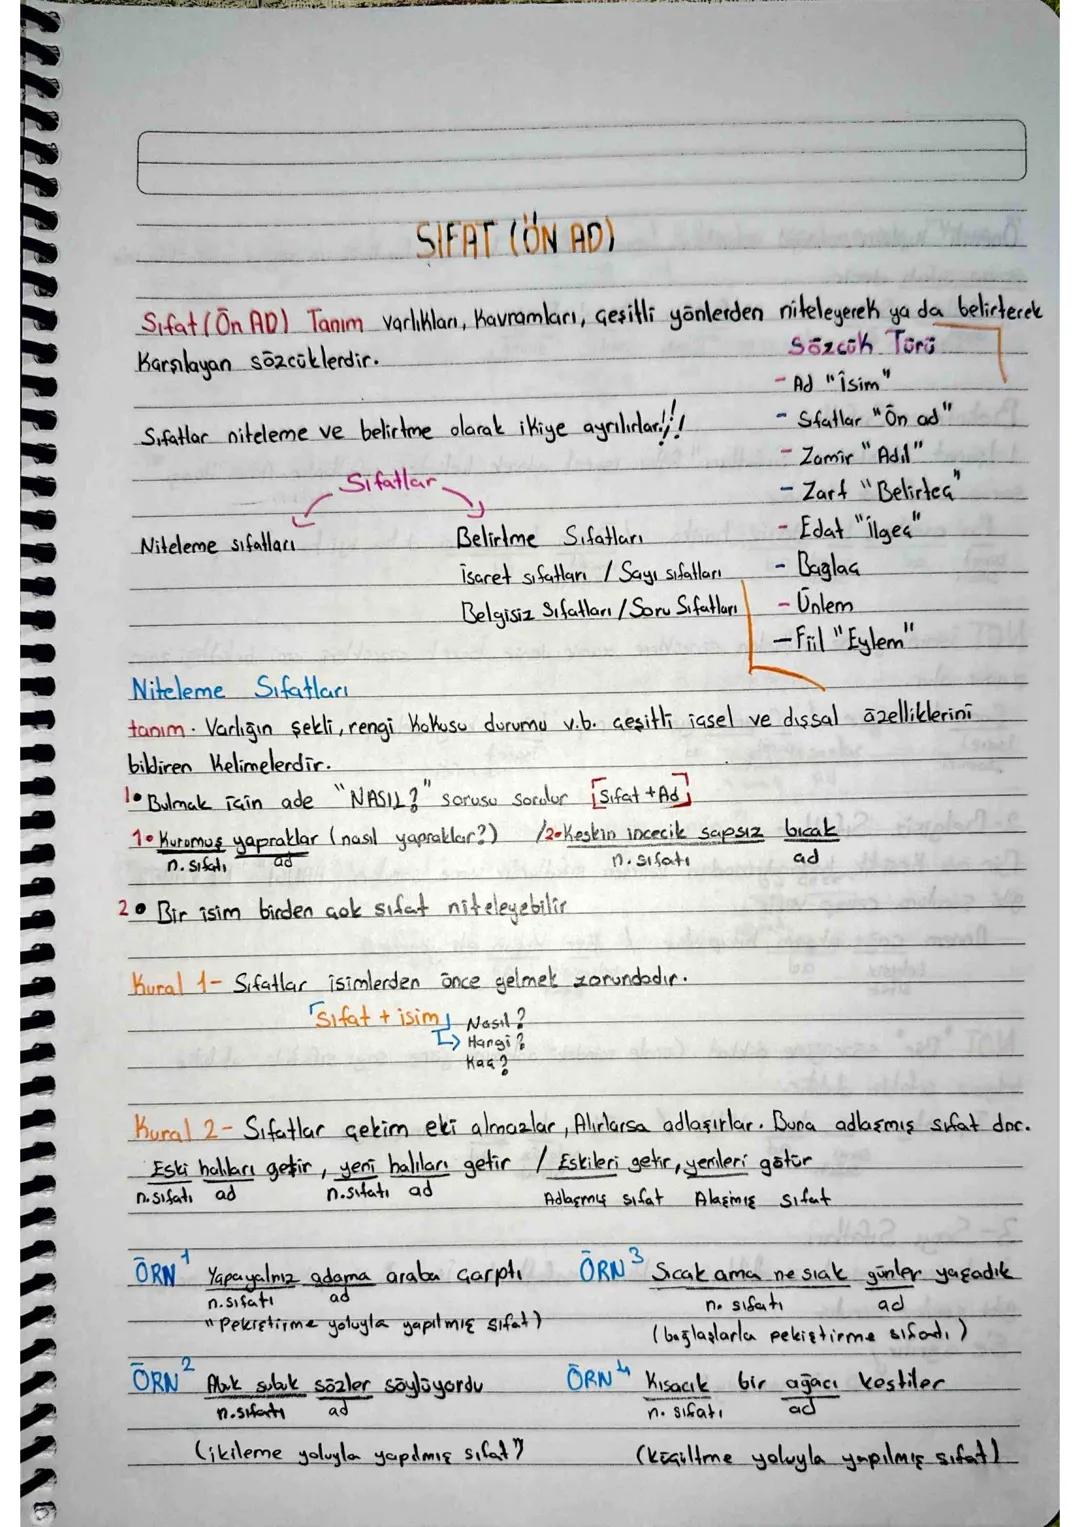 SIFAT (ÖN AD)
Sıfat (Ön AD) Tanım varlıkları, kavramları, çeşitli yönlerden niteleyerek ya da belirterek
karşılayan sözcüklerdir.
Sözcük Türü
- Ad "isim"
- Sfatlar "Ön ad"
- Zamir "Adıl"
- Zarf "Belirteç"
- Edat "ilgeç"
- Bağlaç
- Ünlem
- Fiil "Eylem"
Sıfatlar niteleme ve belirtme olarak ikiye ayrılırlar!!!
Sıfatlar
Niteleme sıfatları
Belirtme Sıfatları
işaret sıfatları / Sayı sıfatları
Belgisiz Sıfatları / Soru Sıfatları
Niteleme Sıfatları
tanım. Varlığın şekli, rengi kokusu durumu v.b. çeşitli içsel ve dışsal özelliklerini
bildiren kelimelerdir.
1• Bulmak için ade "NASIL?" sorusu sorulur [Sıfat + Ad]
1• Kurumuş yapraklar (nasıl yapraklar?) /2•Keskin incecik sapsız bıçak
n. sıfatı ad n. sıfatı ad
2• Bir isim birden çok sıfat niteleyebilir
Kural 1- Sıfatlar isimlerden önce gelmek zorundadır.
Sıfat + isim Nasıl?
Hangi?
Kaç?
Kural 2- Sıfatlar çekim eki almazlar, Alırlarsa adlaşırlar. Buna adlaşmış sıfat dnr.
Eski halıları getir, yeni halıları getir / Eskileri getir, yenileri götür
n.sıfatı ad n.sıfatı ad Adlaşmış sıfat Alaşmış sıfat
ÖRN 1 Yapayalnız adama araba çarptı
n.sıfatı ad
"Pekiştirme yoluyla yapılmış sıfat)
ÖRN 3 Sıcak ama ne sıak günler yaşadık
n. sıfatı ad
(bağlaşlarla pekiştirme sıfadı)
ÖRN 2 Abuk subuk sözler söylüyordu
n.sıfatı ad
(ikileme yoluyla yapılmış sıfat")
ÖRN 4 Kısacık bir ağacı kestiler
n. sıfatı ad
(küçültme yoluyla yapılmış sıfat)